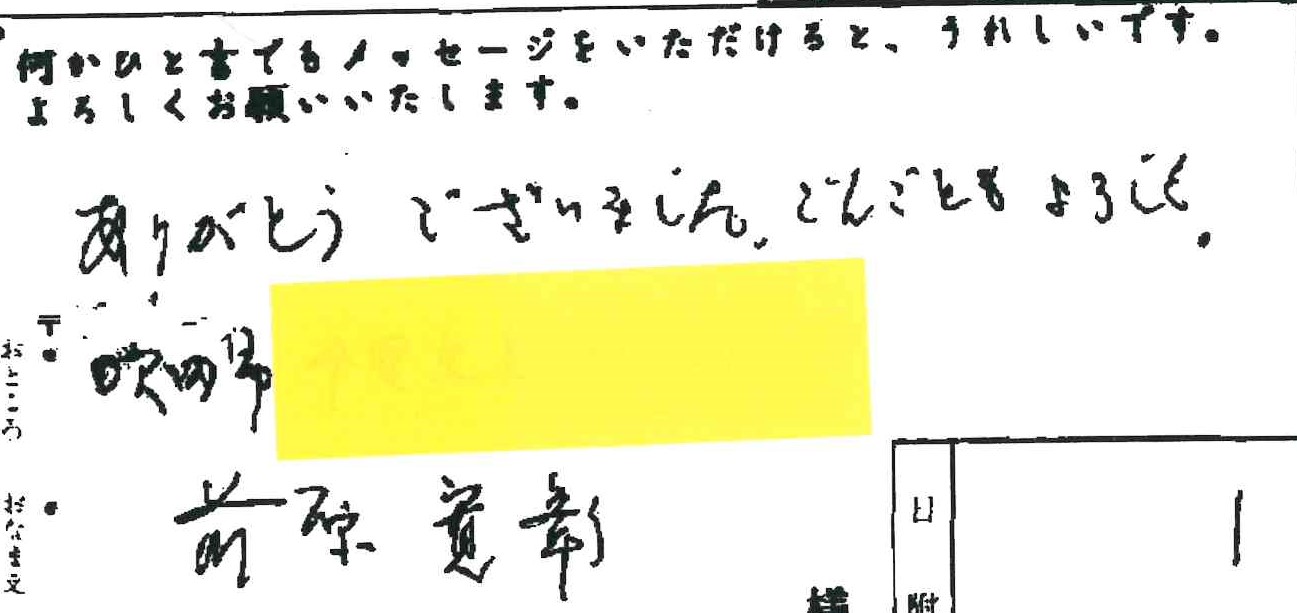 何かひと言でもメッセージをいただけると、うれしいです。
よろしくお願いいたします。
ありがとうございました。こんごともよろしく。
〒
おところ
吹田市
おなまえ
前原 寛彰
様
日附
1